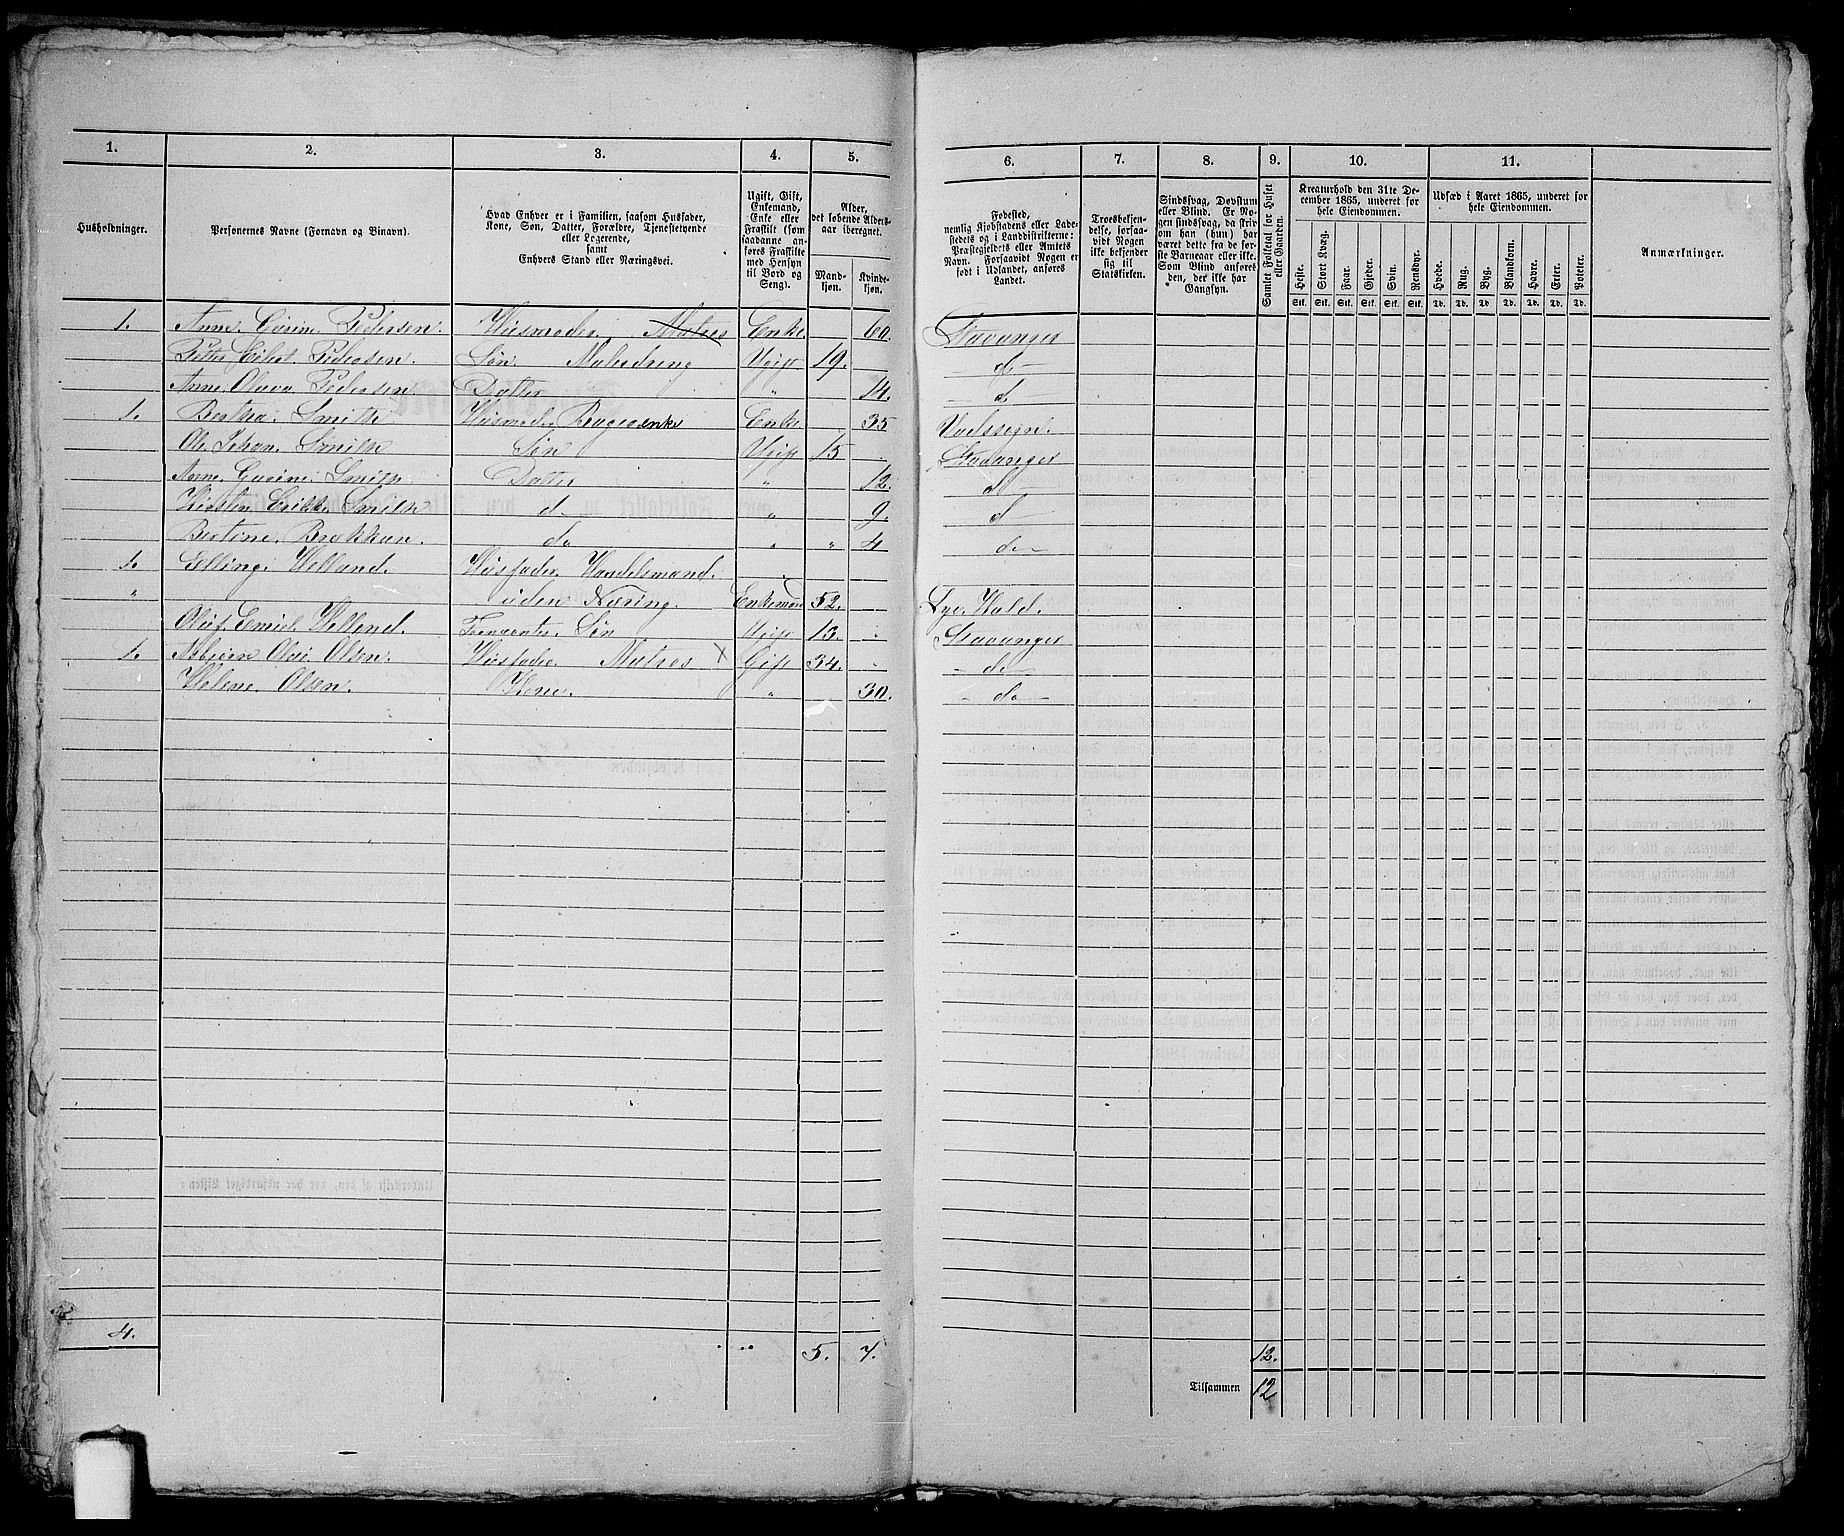 1. 2. 3. 4. 5. 6. 7. 8. 9. 10. 11.
Husholdninger.
Personernes Navne (Fornavn og Binavn).
Hvad Enhver er i Familien, saasom Husfader,
Kone, Søn, Datter, Forældre, Tjenestetyende
eller Logerende,
samt
Enhvers Stand eller Næringsvei.
Ugift, Gift,
Enkemand,
Enke eller
Fraskilt (som
saadanne an-
føres Fraskilte
med Hensyn
til Bord og
Seng).
Alder,
det løbende Alders-
aar iberegnet.
Mand-
kjøn.
Kvinde-
kjøn.
Fødested,
nemlig Kjøbstadens eller Lade-
stedets og i Landdistrikterne:
Præstegjeldets eller Amtets
Navn. Forsaavidt Nogen er
født i Udlandet, anføres
Landet.
Troesbekjen-
delse, forsaa-
vidt Nogen
ikke bekjender
sig til
Statskirken.
Sindssvag, Døvstum
eller Blind. Er No-
gen sindssvag, da skriv
om han (hun) har
været dette fra de før-
ste Barneaar eller ikke.
Som Blind anføres
den, der ikke har
Gangsyn.
Samlet Folketal for Huset
eller Gaarden.
Kreaturhold den 31te De-
cember 1865, underet for
hele Eiendommen.
Heste. Stort Kvæg. Faar. Gjeder. Svin. Rensdyr.
Stk. Stk. Stk. Stk. Stk. Stk.
Udsæd i Aaret 1865, underet for
hele Eiendommen.
Hvede. Rug. Byg. Blandkorn. Havre. Erter. Poteter.
Td. Td. Td. Td. Td. Td. Td.
Anmærkninger.
1. Anne Gurine Pedersen Husmoder, Enke. 60. Stavanger
Petter Eilert Pedersen Søn Malerdreng Ugift 19. do
Anne Olava Pedersen Datter " 14. do
1. Bertha Smith Husmoder Enke 35 Vatssogn.
Ole Johan Smith Søn Ugift 15 Stavanger
Anne Gurine Smith Datter " 12. do
Kirsten Smith do " 9. do
Bertine Brekkan. do " " 4 do
1. Elling Helland. Husfader Handelsmand.
" uden Næring. Enkemand 52. Lye. Hald.
Oluf Emiel Helland. Søn Ugift 13. " Stavanger
1. Asbjørn Olai Olsen. Husfader Matros X Gift 34. " do
Helene Olsen. Kone. " 30. do
4. 5. 7. 12.
Tilsammen 12